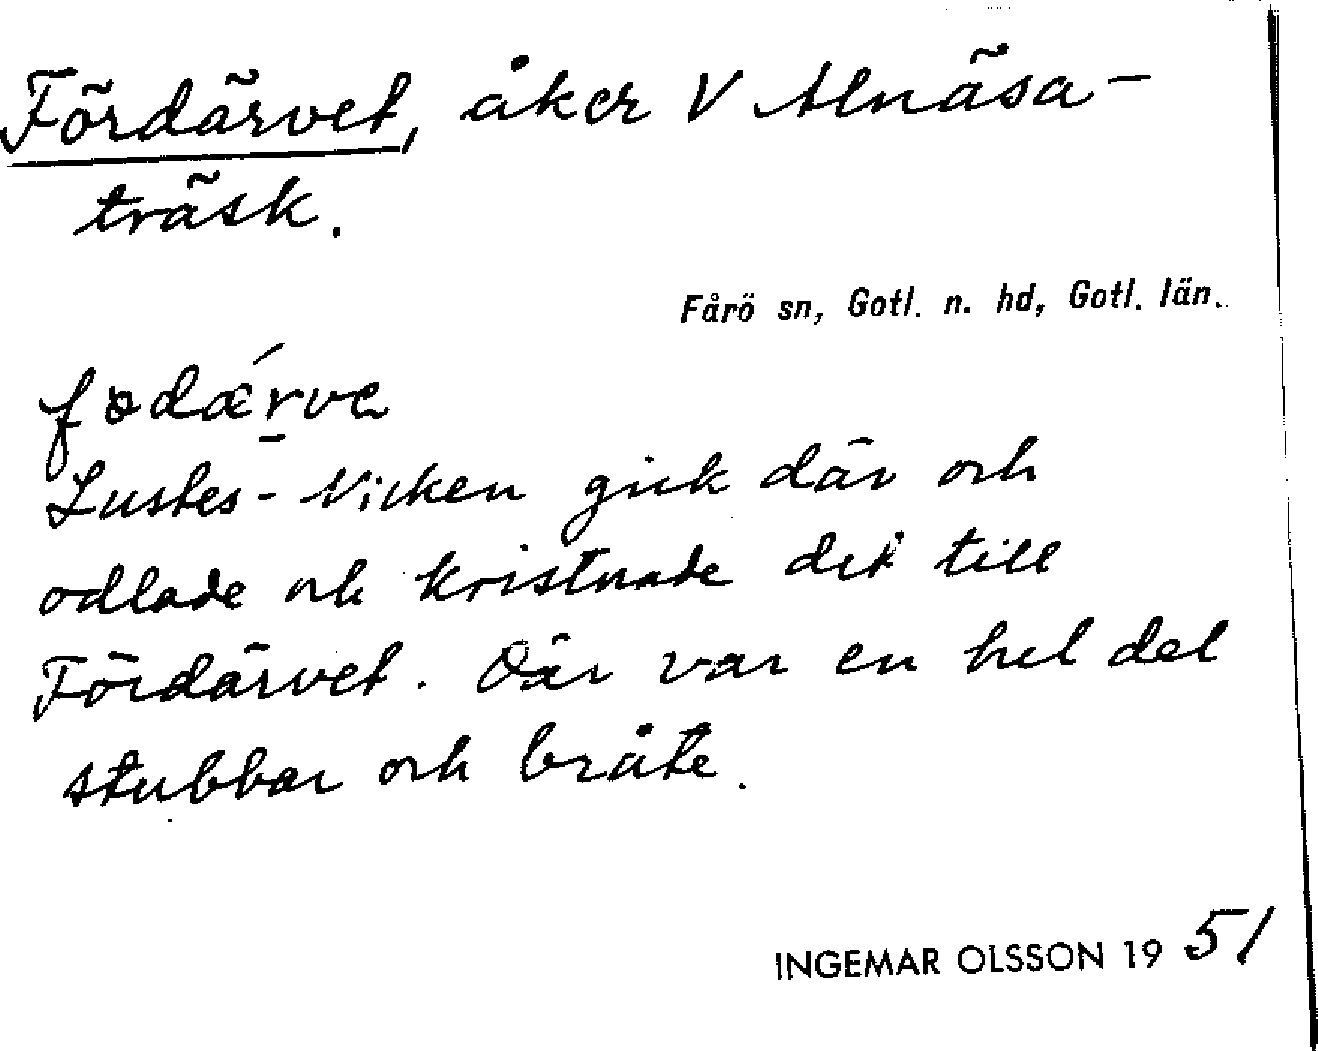 Fördärvet, åker V Alnäsa-
träsk.
Fårö sn, Gotl. n. hd, Gotl. län.
fodǽrve
Lustes-Nicken gick där och
odlade och kristnade det till
Fördärvet. Där var en hel del
stubbar och bråte.
INGEMAR OLSSON 1951